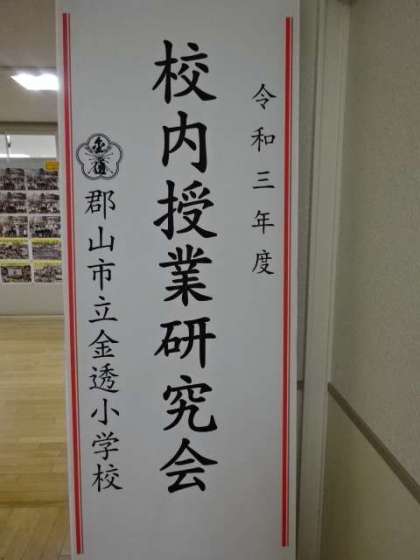 令和三年度
校内授業研究会
郡山市立金透小学校